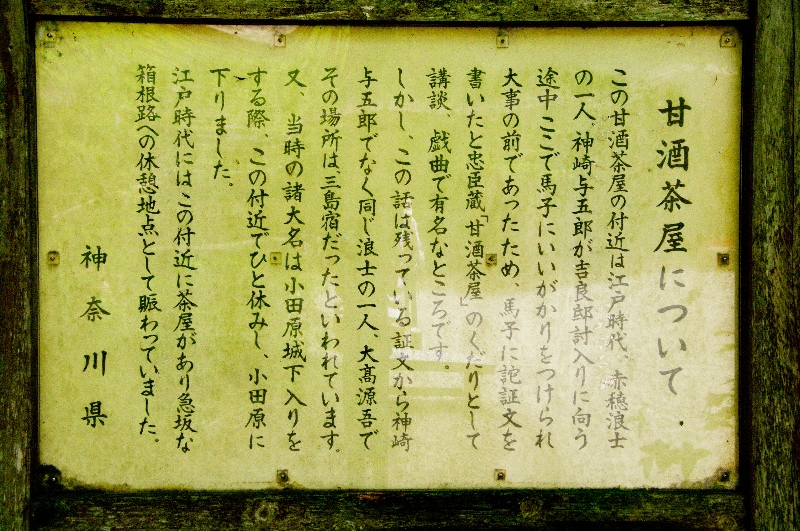 甘酒茶屋について
この甘酒茶屋の付近は江戸時代、赤穂浪士
の一人、神崎与五郎が吉良邸討入りに向う
途中ここで馬子にいいがかりをつけられ
大事の前であったため、馬子に詫証文を
書いたと忠臣蔵「甘酒茶屋」のくだりとして
講談、戯曲で有名なところです。
しかし、この話は残っている証文から神崎
与五郎でなく同じ浪士の一人、大高源吾で
その場所は、三島宿だったといわれています。
又、当時の諸大名は小田原城下入りを
する際、この付近でひと休みし、小田原に
下りました。
江戸時代にはこの付近に茶屋があり急坂な
箱根路への休憩地点として賑わっていました。
神奈川県